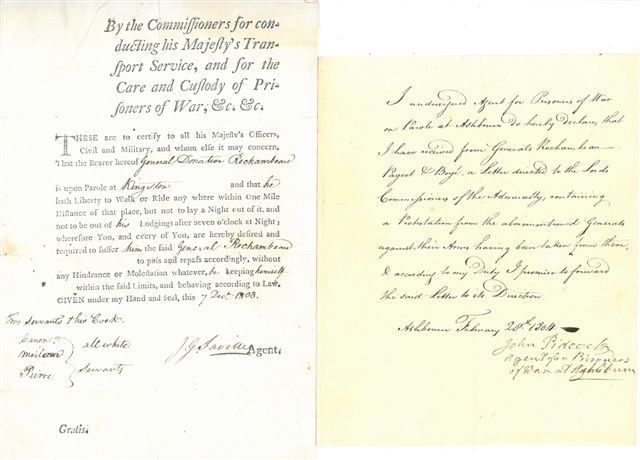 By the Commissioners for con-
ducting his Majesty's Tran-
sport Service, and for the
Care and Custody of Pri-
soners of War, &c. &c.
THESE are to certify to all his Majesty's Officers,
Civil and Military, and whom else it may concern,
That the Bearer hereof General Donatien Rochambeau
is upon Parole at Kingston and that he
hath Liberty to Walk or Ride any where within One Mile
Distance of that place, but not to lay a Night out of it, and
not to be out of his Lodgings after seven o'clock at Night;
wherefore You, and every of You, are hereby desired and
required to suffer him the said General Rochambeau
to pass and repass accordingly, without
any Hindrance or Molestation whatever, he keeping himself
within the said Limits, and behaving according to Law.
GIVEN under my Hand and Seal, this 7 Decr. 1803.
Two servants & his Cook.
all white
Pierre servants
J.G. Saville Agent.
Gratis.
I undersigned Agent for Prisoners of War
on Parole at Ashbourn do hereby declare, that
I have received from Generals Rochambeau
Pageot & Boyé, a Letter directed to the Lords
Commissioners of the Admiralty, containing
a Protestation from the abovementioned Generals
against their Arms having been taken from them,
& according to my Duty I promise to forward
the said Letter to its Direction
Ashbourn February 28th 1804
John Pidcock
Agent for Prisoners
of War at Ashburn